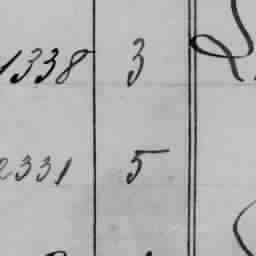 1338 3
2331 5